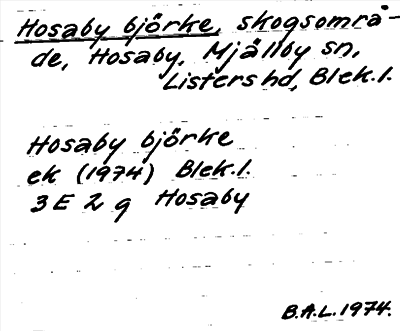 Hosaby björke, skogsområ-
de, Hosaby, Mjällby sn,
Listers hd, Blek.l.
Hosaby björke
ek (1974) Blek.l.
3 E 2 g Hosaby
B.A.L. 1974.